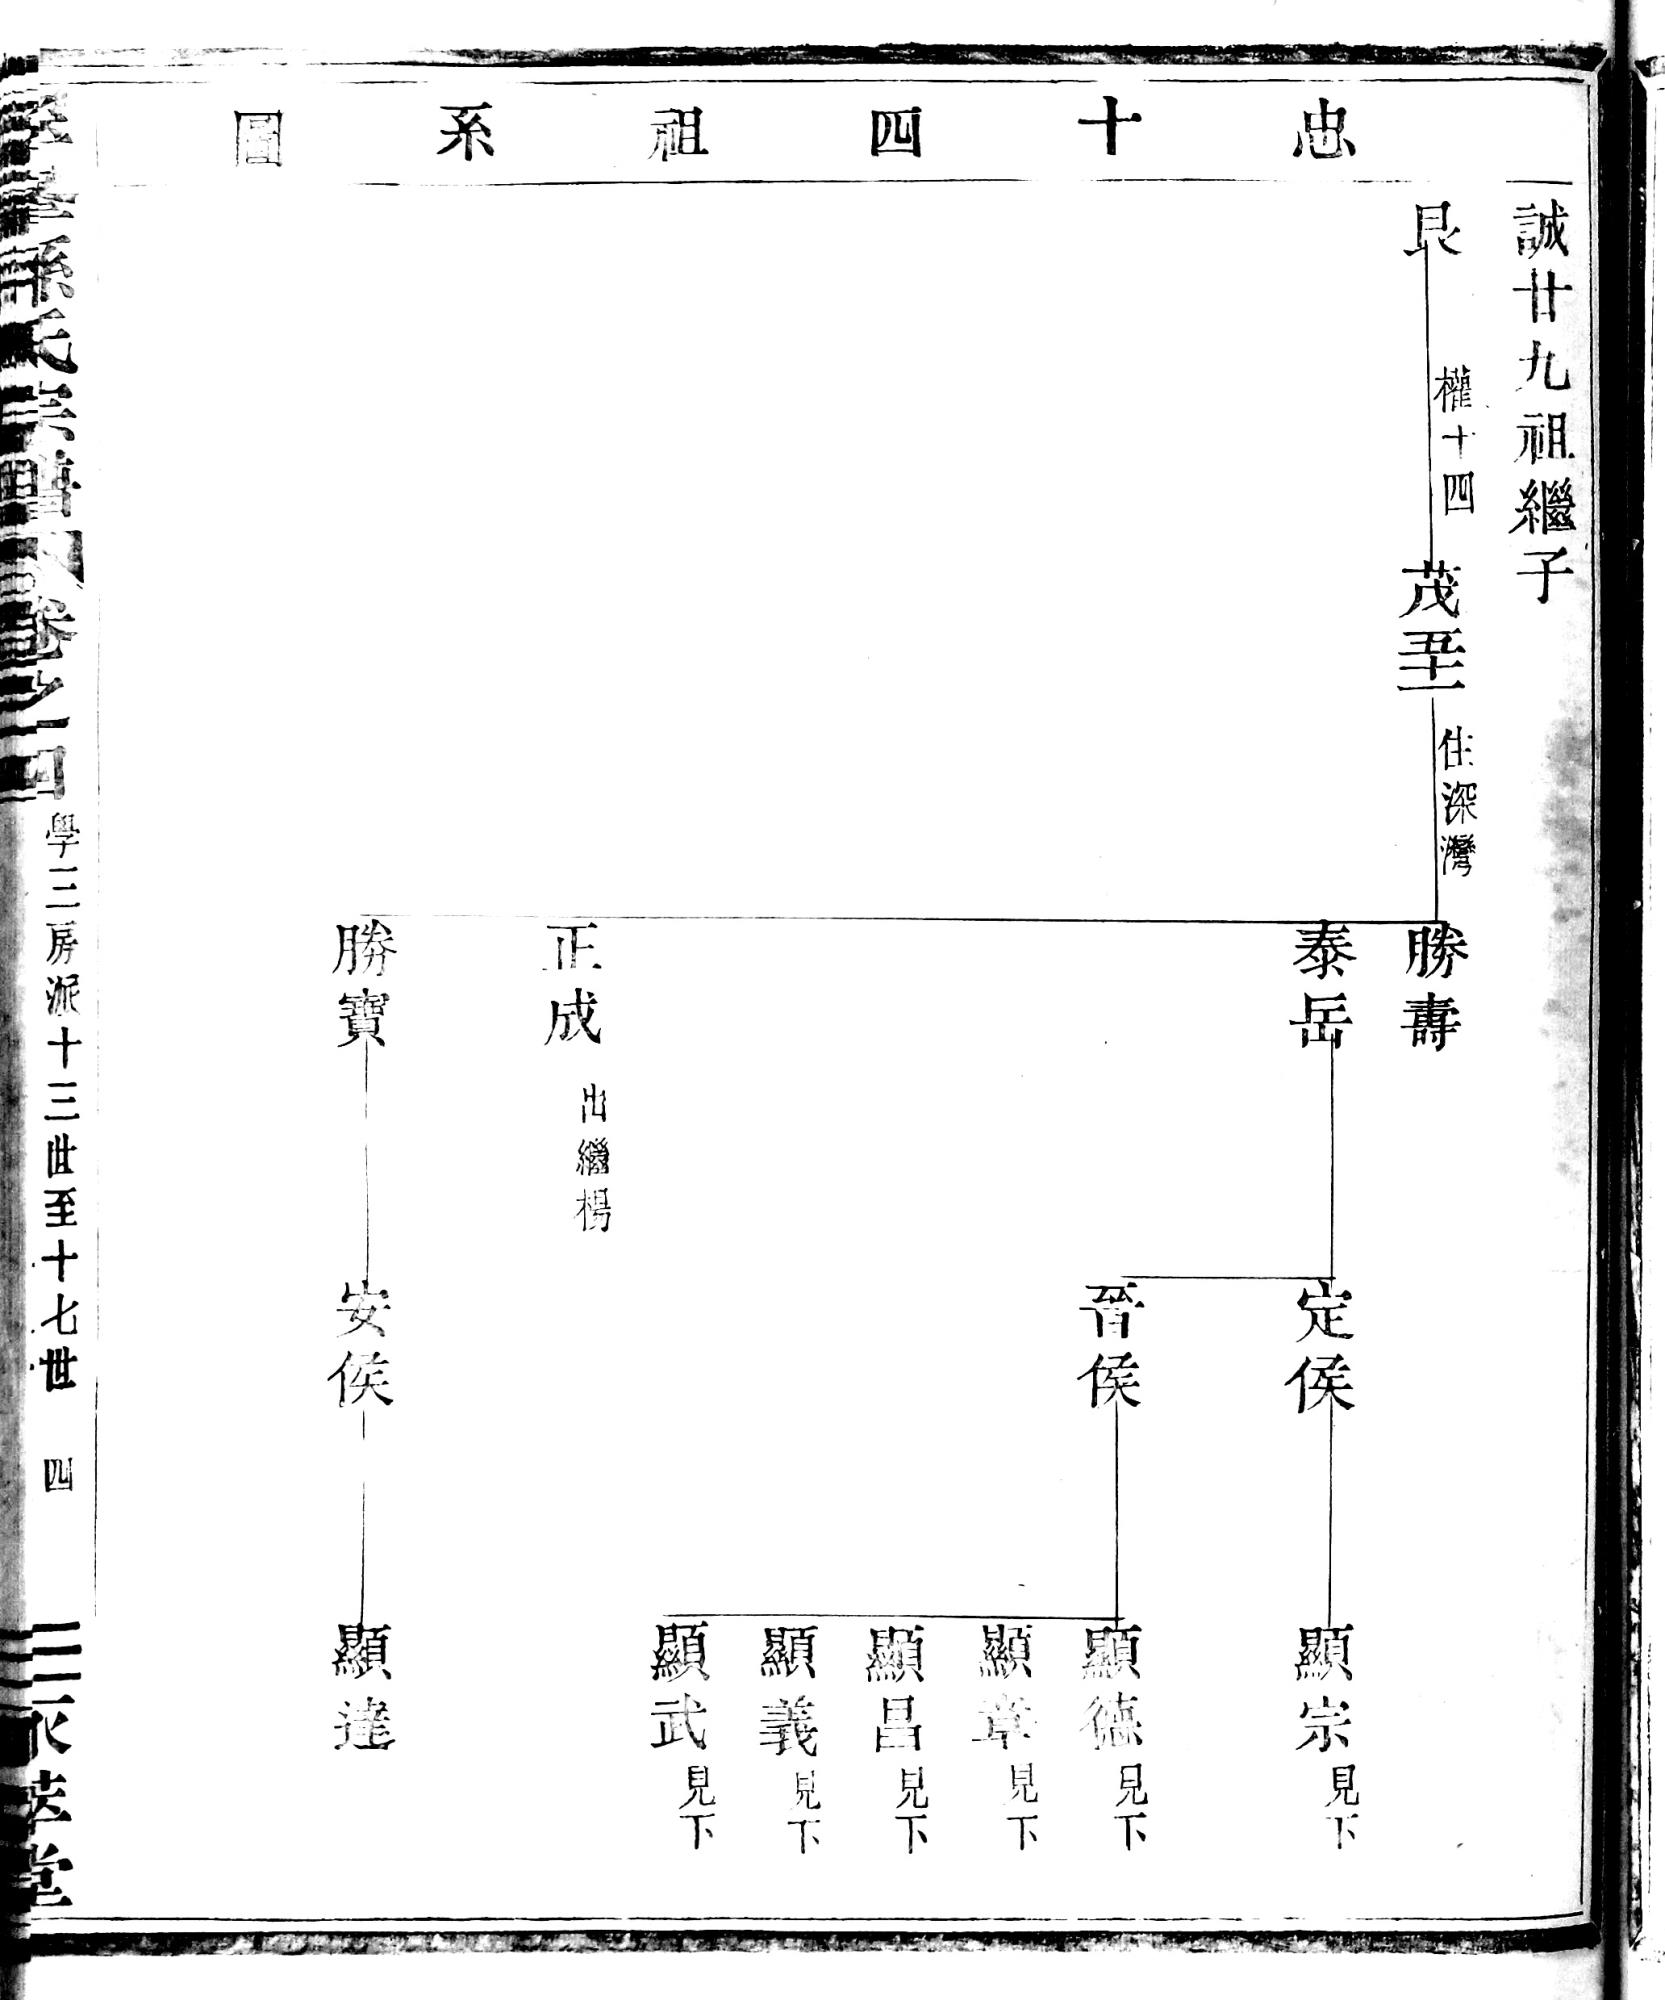 忠十四祖系圖
誠廿九祖繼子
艮
權十四
茂五十一
住深灣
勝壽
泰岳
正成
出繼楊
勝寶
定侯
晉侯
安侯
顯宗
見下
顯德
見下
顯章
見下
顯昌
見下
顯義
見下
顯武
見下
顯達
孫氏宗譜
卷之一四
學三房派十三世至十七世
四
萃堂